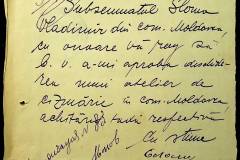 Subsemnatul Sloma
Vladimir din com. Moldova,
cu onoare vă rog să
b. v. a-mi aproba deschide-
rea unui atelier de
cizmărie în com. Moldova,
achitând taxa respectivă
Cu stima